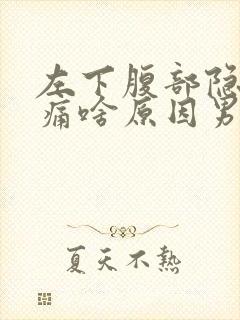 左下腹部隐
痛啥原因男
夏天不熱